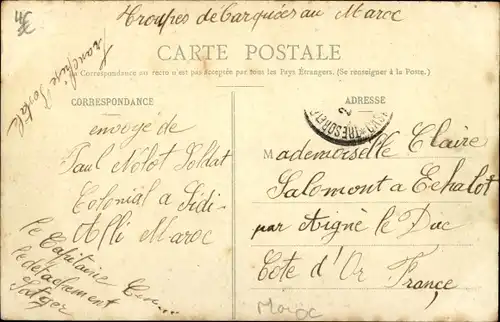 Troupes débarquées au Maroc
Franchise Postale
CARTE POSTALE
La Correspondance au recto n'est pas acceptée par tous les Pays Étrangers. (Se renseigner à la Poste.)
CORRESPONDANCE
envoyé de
Paul Nolot Soldat
Colonial a Sidi-
Alli Maroc
le Capitaine
le détachement
ADRESSE
Mademoiselle Claire
Salomont a Echalot
par Aigné le Duc
Côte d'Or France,
Maroc